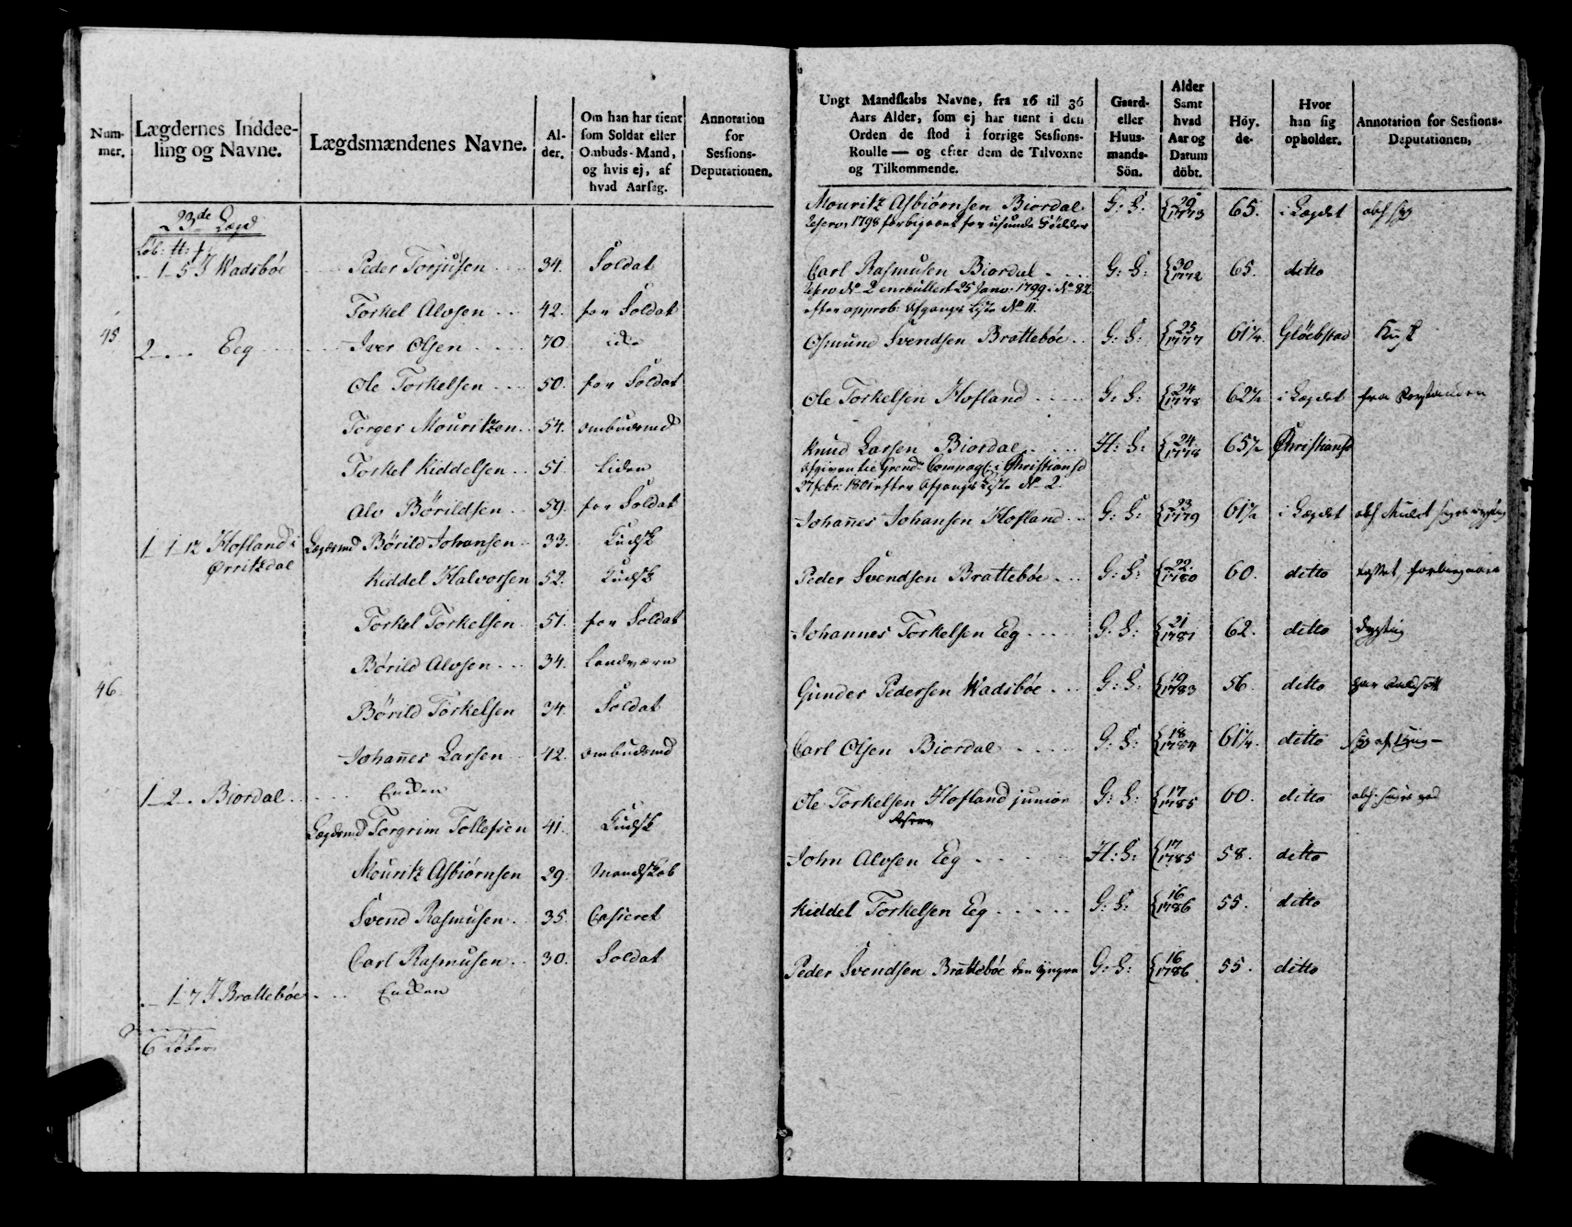 Num-
mer.
Lægdernes Inddee-
ling og Navne.
Lægdsmændenes Navne.
Al-
der.
Om han har tient
som Soldat eller
Ombuds-Mand,
og hvis ej, af
hvad Aarsag.
Annotation
for
Sessions-
Deputationen.
23de Lægd
Løb: H:
1 5 J Wadsbøe Peder Torjusen 34. Soldat
Torkel Alvsen 42. for Soldat
45
2 Eeg Iver Olsen 70.
Ole Torkelsen 50. for Soldat
Torger Mouritzen 54. ombudsmd
Torkel Kiddelsen 51. Liden
Alv Børildsen 59. for Soldat
1 1 12 Hofland i Lægdsmd Børild Johansen 33. Kudsk
Ørritzdal
Kiddel Halvorsen 52. Kudsk
Torkel Torkelsen 51. for Soldat
Børild Alvsen 34. Landværn
46.
Børild Torkelsen 34. Soldat
Johañes Larsen 42. ombudsmd
1 2 Biordal Enken
Lægdsmd Torgrim Tollefsen 41. Kudsk
Mouritz Asbiørnsen 29. Mandskab
Svend Rasmusen 35. Casseret
Carl Rasmusen 30. Soldat
1 7 J Brattebøe Enken
6 Løber
Ungt Mandskabs Navne, fra 16 til 36
Aars Alder, som ej har tient i den
Orden de stod i forrige Sessions-
Roulle — og efter dem de Tilvoxne
og Tilkommende.
Gaard-
eller
Huus-
mands-
Sön.
Alder
Samt
hvad
Aar og
Datum
döbt.
Höy-
de.
Hvor
han sig
opholder.
Annotation for Sessions-
Deputationen,
Mouritz Asbiørnsen Biordal G: S: 29 1773 65. i Lægdet
Reserv, 1798 forbigaaet for usunde Födder
Carl Rasmusen Biordal G: S: 30 1772 65. ditto
Reserv No 2 enrulleret 25 Janv: 1799 No 82
efter approb: Afgangs Liste No 11.
Osmund Svendsen Brattebøe G: S: 25 1777 61¼. Gloebstad
Ole Torkelsen Hofland G: S: 24 1778 62½ i Lægdet
Knud Larsen Biordal H: S: 24 1778 65½ Christiansd
Afgiven til Grend: Compagn: i Christiansd
27 febr: 1801 efter Afgangs Liste No 2.
Johañes Johansen Hofland G: S: 23 1779 61½ i Lægdet
Peder Svendsen Brattebøe G: S: 22 1780 60. ditto
Johannes Torkelsen Eeg G: S: 21 1781 62. ditto dygtig
Gunder Pedersen Wadsbøe G: S: 19 1783 56. ditto
Carl Olsen Biordal G: S: 18 1784 61¼. ditto
Ole Torkelsen Hofland junior G: S: 17 1785 60. ditto
John Alvsen Eeg H: S: 17 1785 58. ditto
Kiddel Torkelsen Eeg G: S: 16 1786 55. ditto
Peder Svendsen Brattebøe den yngre G: S: 16 1786 55. ditto